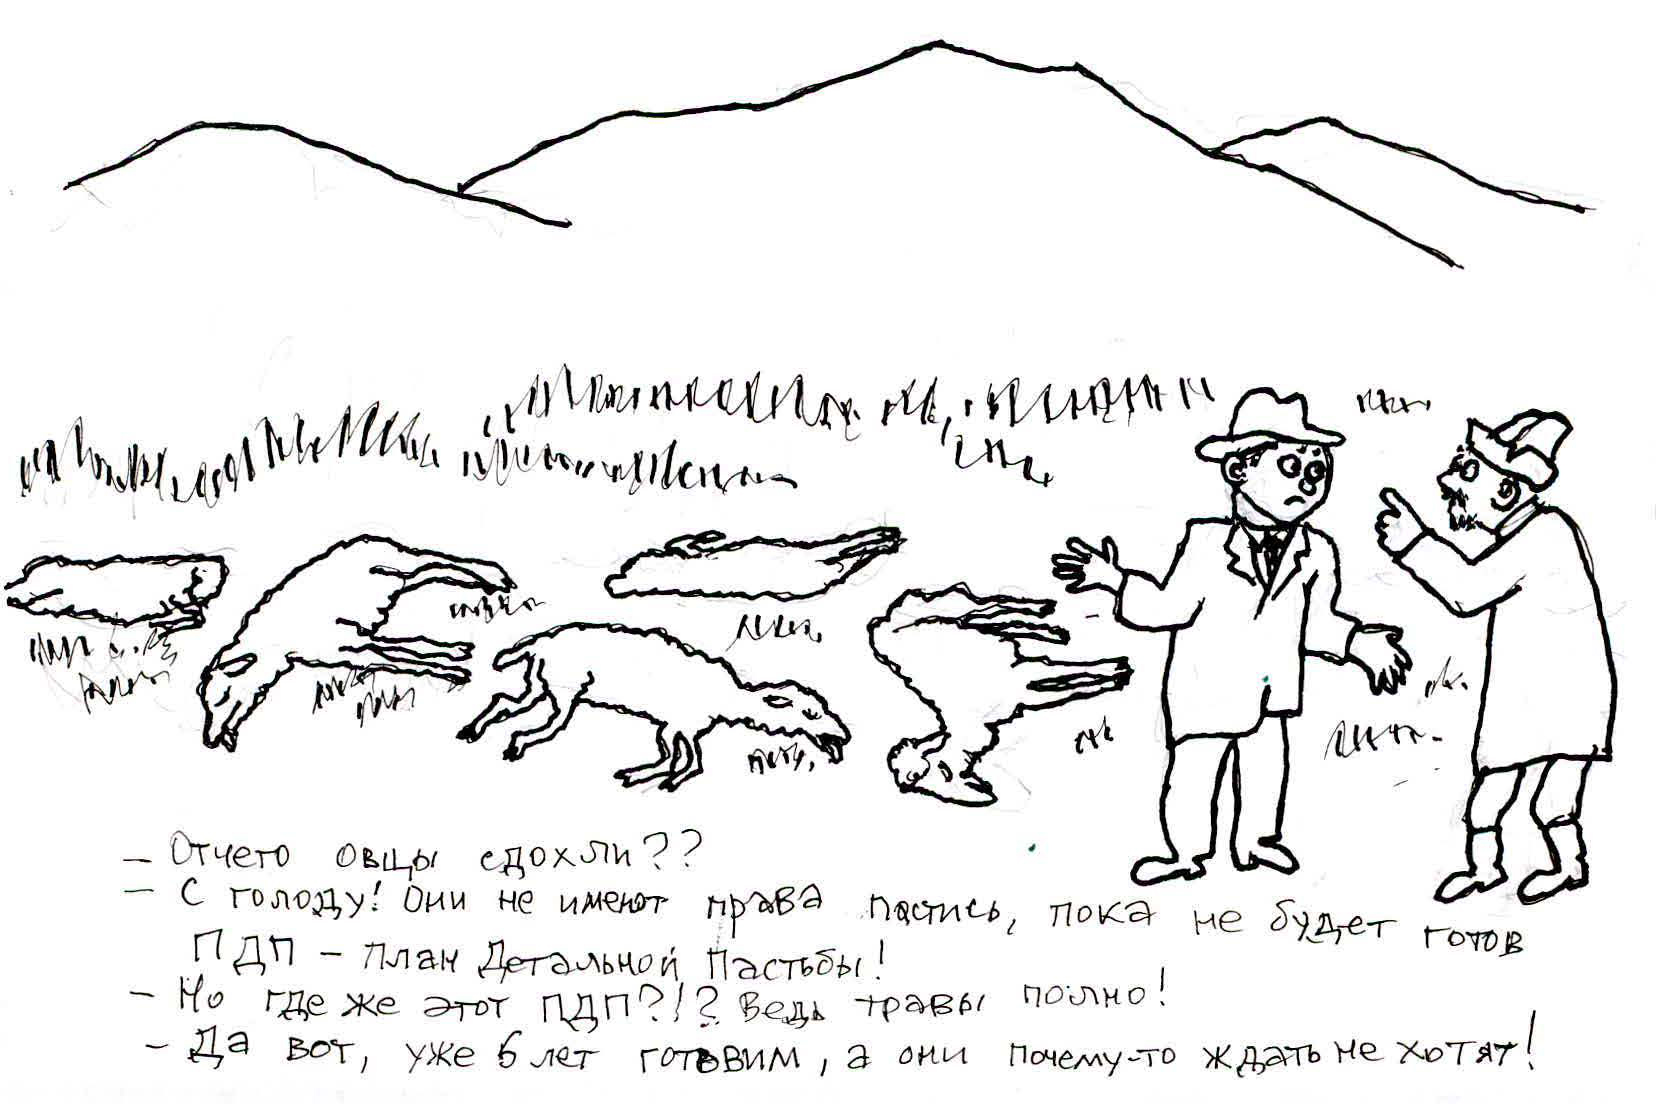 - Отчего овцы сдохли??
- С голоду! Они не имеют права пастись, пока не будет готов
ПДП - План Детальной Пастьбы!
- Но где же этот ПДП?!? Ведь травы полно!
- Да вот, уже 5 лет готовим, а они почему-то ждать не хотят!